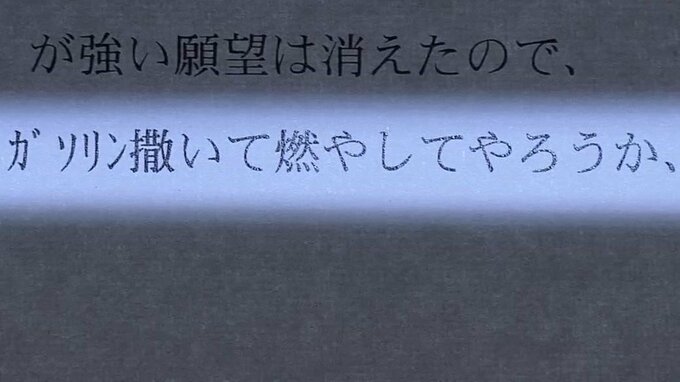 が強い願望は消えたので、
ガソリン撒いて燃やしてやろうか、